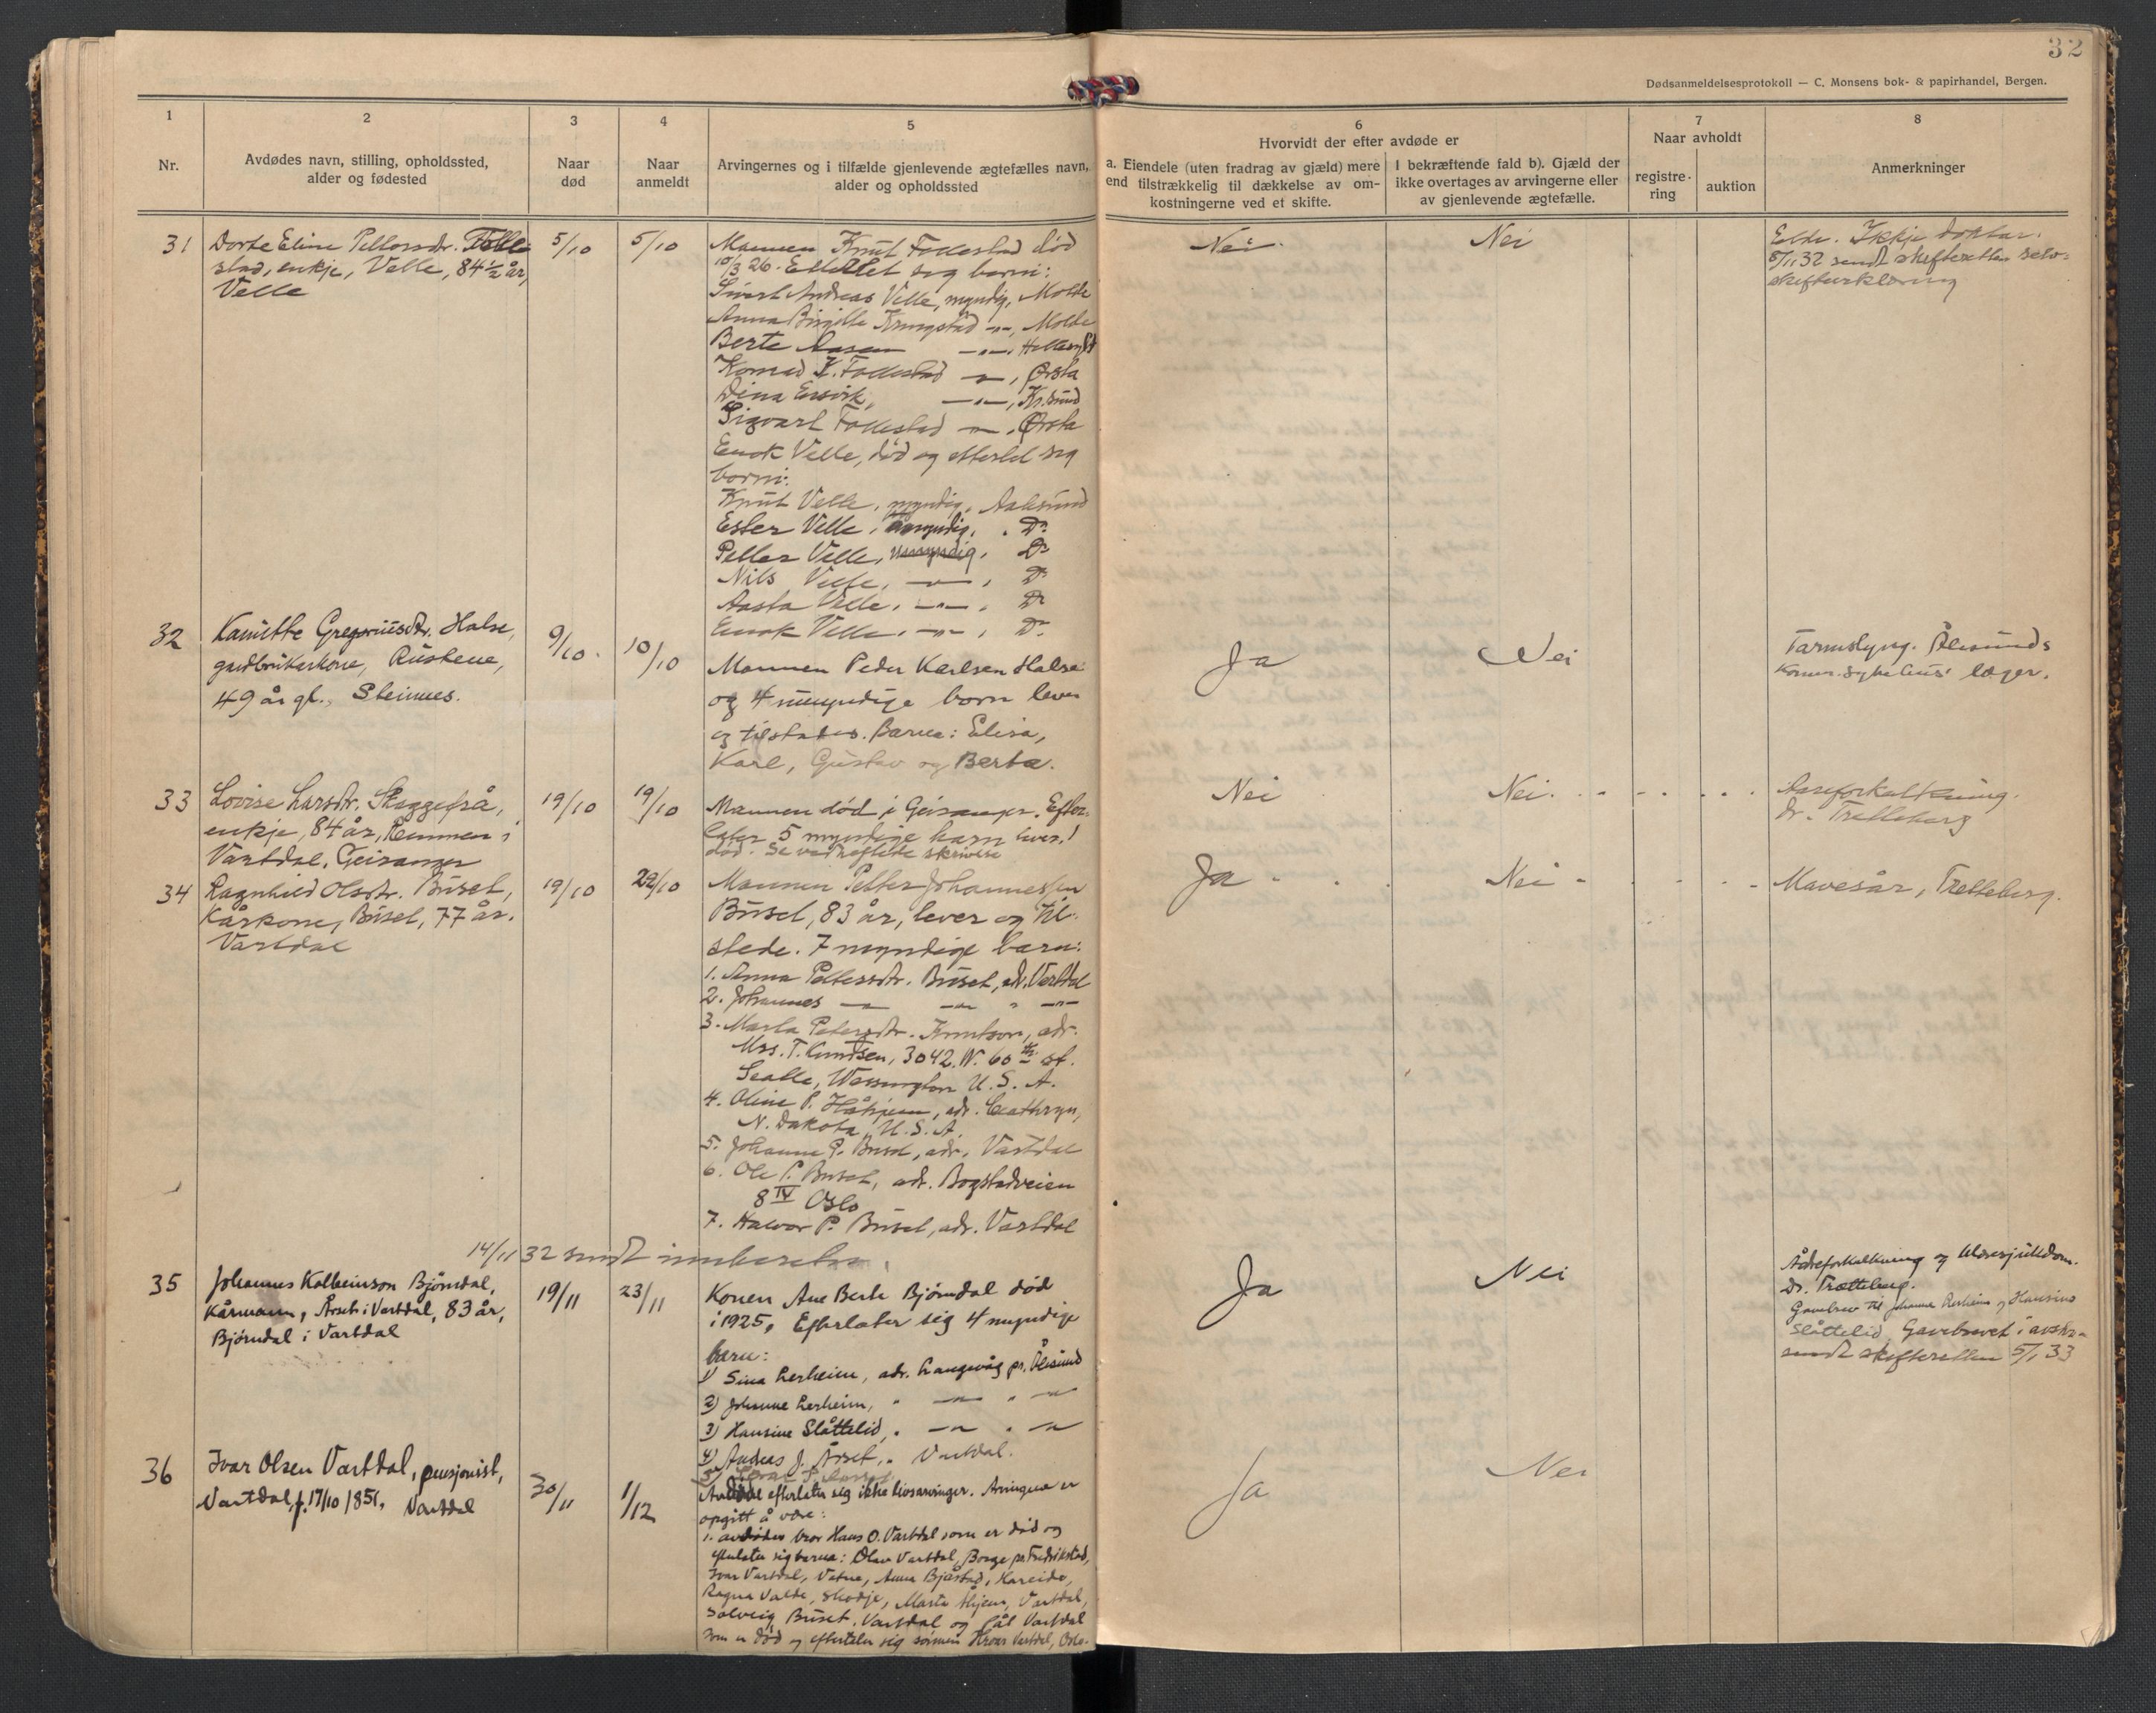 32
Dødsanmeldelsesprotokoll — C. Monsens bok- & papirhandel, Bergen.
1
Nr.
2
Avdødes navn, stilling, opholdssted,
alder og fødested
3
Naar
død
4
Naar
anmeldt
5
Arvingernes og i tilfælde gjenlevende ægtefælles navn,
alder og opholdssted
6
Hvorvidt der efter avdøde er
a. Eiendele (uten fradrag av gjæld) mere
end tilstrækkelig til dækkelse av om-
kostningerne ved et skifte.
I bekræftende fald b). Gjæld der
ikke overtages av arvingerne eller
av gjenlevende ægtefælle.
7
Naar avholdt
registre-
ring
auktion
8
Anmerkninger
31
Dorte Eline Pettersdr. Folle-
stad, enkje, Velle, 84 ½ år,
Velle
5/10
5/10
Mannen Knut Follestad død
10/3 26. Etterlet seg born:
Sivert Andreas Velle, myndig, Molde
Anna Birgitte Kringstad -"-, Molde
Berte Aasen -"-, Hellesylt
Konrad K. Follestad -"-, Ørsta
Dina Ersvik, -"-, Kr.sund
Sigvart Follestad -"-, Ørsta
Enok Velle, død og etterlet seg
born:
Knut Velle, myndig, Aalesund
Ester Velle, umyndig, Do
Petter Velle, umyndig, Do
Nils Velle, -"-, Do
Aasta Velle, -"-, Do
Enok Velle, -"-, Do
Nei.
Nei
Elde. Ikkje doktar.
8/11 32 sendt skifteretten selv-
skifteerklæring
32
Kamitte Gregoriusdtr. Halse,
gardbrukarkone, Rustene,
49 år gl., Steinnes.
9/10.
10/10
Mannen Peder Karlsen Halse
og 4 umyndige born lever
og tilstades. Barna: Elisa,
Karl, Gustav og Berta.
Ja
Nei
Tarmslyng. Ålesunds
komm. sykehus' læger.
33
Lovise Larsdtr. Skaggeflå,
enkje, 84 år, Remmen i
Vartdal, Geiranger
19/10
19/10
Mannen død i Geiranger. Efter-
later 5 myndige barn lever. 1
død. Se vedheftede skrivelse
Nei
Nei.
Aareforkalkning.
dr. Trætteberg
34
Ragnhild Olsdtr. Buset,
Kårkone, Buset, 77 år.
Vartdal
19/10
29/10
Mannen Petter Johannessen
Buset, 83 år, lever og til-
stede. 7 myndige barn:
1. Anna Pettersdtr. Buset, adr. Vartdal
2. Johannes -"- -"- " -"-
3. Marta Petersdtr. Knutson, adr.
Mrs. T. Knudsen, 3042. W. 60 th st.
Seatle, Wassington U. S. A.
4. Oline P. Håhjem, adr. Cathryn,
N. Dakota, U. S. A.
5. Johanne P. Buset, adr. Vartdal
6. Ole P. Buset, adr. Bogstadveien
8 IV Oslo
7. Halvor P. Buset, adr. Vartdal
Ja
Nei
Mavesår, Trætteberg.
14/11 32 sendt innberetn.
35
Johannes Kolbeinson Bjørndal,
Kårmann, Årset i Vartdal, 83 år,
Bjørndal i Vartdal
19/11
23/11
Konen Ane Berte Bjørndal død
i 1925. Efterlater sig 4 myndige
barn:
1) Sina Lerheim, adr. Langevåg pr. Ålesund
2) Johanne Lerheim, " -"- " -"-
3) Hansine Slåttelid, " -"- " -"-
4) Andreas J. Årset, " Vartdal.
Ja
Nei
Ådreforkalkning og blæresjukdom.
Dr. Trætteberg.
Gavebrev til Johanne Lerheim og Hansine
Slåttelid. Gavebrevet i avskr.
sendt skifteretten 5/1 33
36
Ivar Olsen Vartdal, pensjonist,
Vartdal, f. 17/10 1851, Vartdal
30/11
1/12
Avdøde efterlater sig ikke livsarvinger. Arvingene er
opgitt å være:
1. avdødes bror Hans O. Vartdal som er død og
efterlater sig barna: Olav Vartdal, Borge pr. Fredrikstad,
Ivar Vartdal, Vatne, Anna Bjåstad, Hareide,
Ragna Valde, Skodje, Marta Åhjem, Vartdal,
Solveig Buset, Vartdal og Pål Vartdal
som er død og efterlater sig sønnen Hroar Vartdal, Oslo.
Ja
Nei